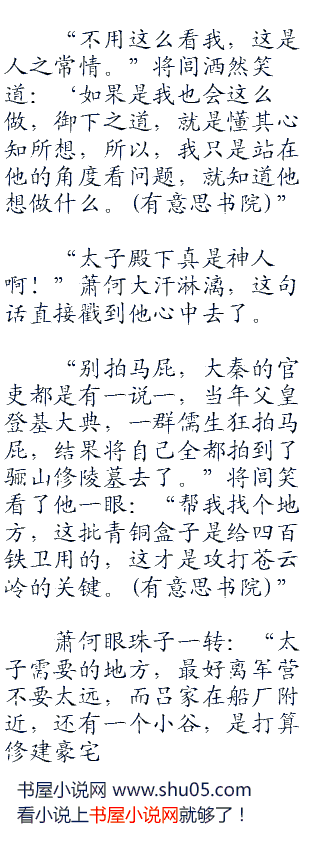 “不用这么看我，这是
人之常情。”将闾洒然笑
道：‘如果是我也会这么
做，御下之道，就是懂其心
知所想，所以，我只是站在
他的角度看问题，就知道他
想做什么。(有意思书院)”
“太子殿下真是神人
啊！”萧何大汗淋漓，这句
话直接戳到他心中去了。
“别拍马屁，大秦的官
吏都是有一说一，当年父皇
登基大典，一群儒生狂拍马
屁，结果将自己全都拍到了
骊山修陵墓去了。”将闾笑
看了他一眼：“帮我找个地
方，这批青铜盒子是给四百
铁卫用的，这才是攻打苍云
岭的关键。(有意思书院)”
萧何眼珠子一转：“太
子需要的地方，最好离军营
不要太远，而吕家在船厂附
近，还有一个小谷，是打算
修建豪宅
书屋小说网 www.shu05.com
看小说上书屋小说网就够了！